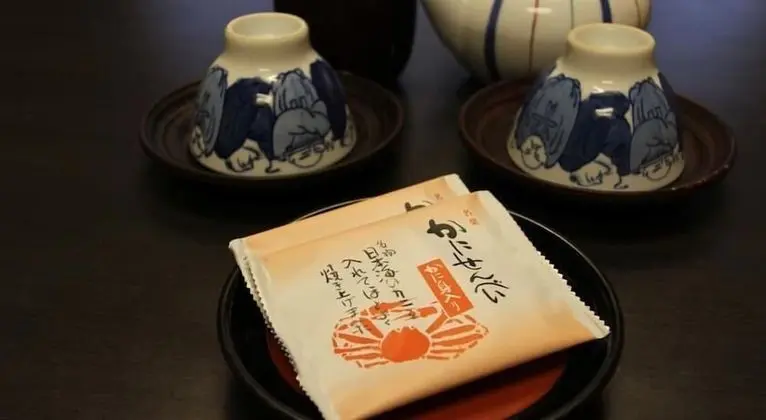 かにせんべい
かに身入り
名物
日本海のカニを
入れてほ
焼き上げました
か